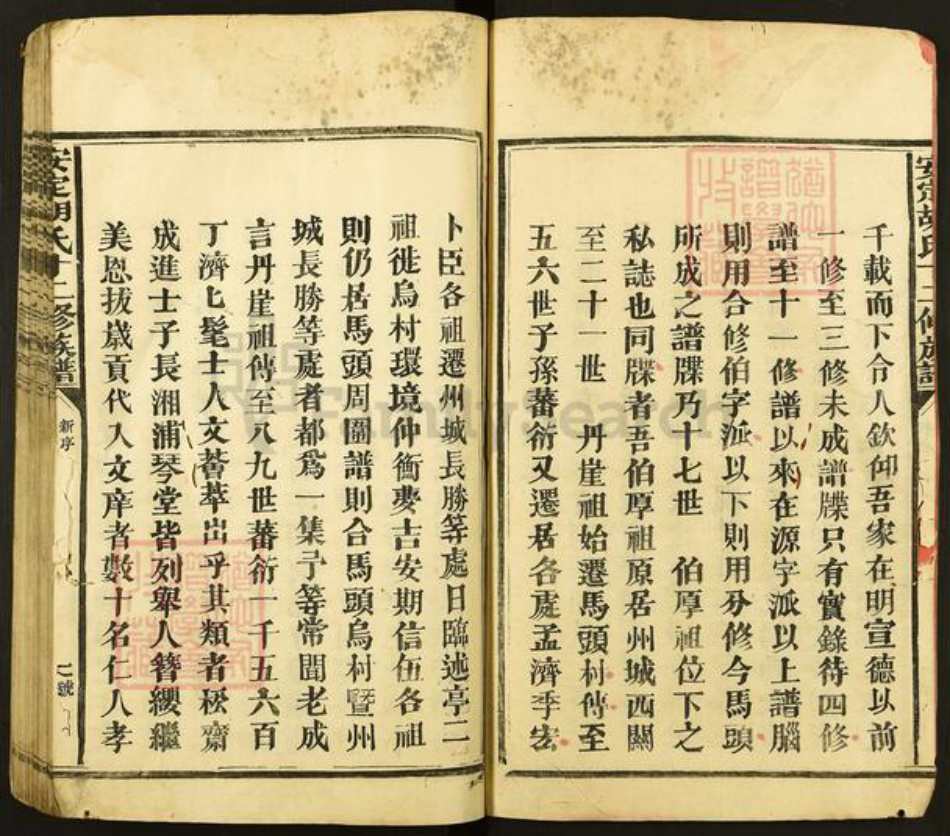 安定胡氏十二修族譜
千載而下令人欽仰吾家在明宣德以前
一修至三修未成譜牒只有實錄待四修
譜至十一修譜以來在源字派以上譜腦
則用合修伯字派以下則用分修今馬頭
所成之譜牒乃十七世 伯厚祖位下之
私誌也同牒者吾伯厚祖原居州城西關
至二十一世 丹崖祖始遷馬頭村傳至
五六世子孫蕃衍又遷居各處孟濟季宏
卜臣各祖遷州城長勝等處日臨述亭二
祖徙烏村環境仲衡夔吉安期信伍各祖
則仍居馬頭周圍譜則合馬頭烏村暨州
城長勝等處者都為一集予等常聞老成
言丹崖祖傳至八九世蕃衍一千五六百
丁濟匕髦士人文薈萃出乎其類者崧齋
成進士子長湘浦琴堂皆列舉人簪纓繼
美恩拔歲貢代入文庠者數十名仁人孝
安定胡氏十二修族譜
新序
二號
FamilySearch